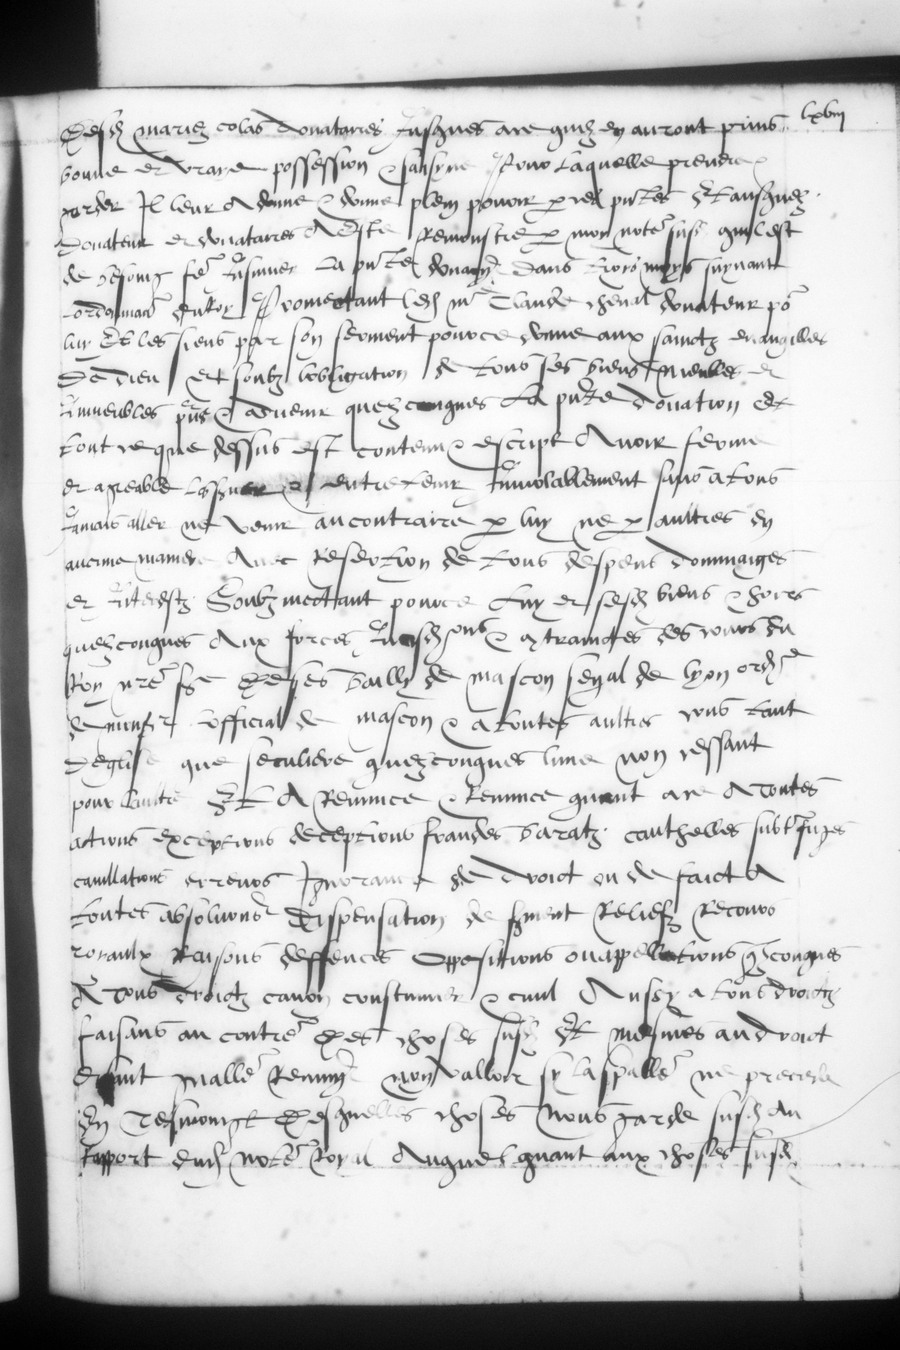 lxviii
Desd mariez colas donataires Jusques a ce quilz en auront prins
bonne et vraye possession & saisyne Pour laquelle prendre &
garder Il leur A donne & donne plein pouvoir p ces pntes Et ausquelz
Donateur et donataires A Este Remonstre p moy notre susd quil est
de besoing fe Insinuer La pnte dona͠on Dans troys moys suyvant
Lordonnance Promectant led Mre Claude cheval donateur po
luy Et les siens par son serment pour ce donne aux sainctz evangilles
De dieu et soubz lobligation de tous ses biens Meubles et
Immeubles pns & advenir quelzconques La pnte Donation Et
tout ce que dessus est contenu & escript Avoir ferme
et agreable & entretenir Inviolablement sans a tous
Jamais aller ne venir au contraire p luy ne p aultres en
aucune maniere Avec Resection de tous despens dommaiges
et Interestz Soubzmectant pour ce Luy et sesd biens & hoirs
quelzconques Aux forces & contrainctes des cours du
Roy nre sre De ses bailly de mascon senal de lyon ord
official de mascon & a toutes aultres cours tant
Deglise que seculiere quelzconques lune non cessant
pour laultre Et A Renunce & Renunce quant a ce A toutes
actions exceptions deceptions fraudes baratz cauthelles subterfuges
cavillations erreurs Ignorance de droict ou de faict A
toutes absolu͠ons Dispensation de sment Reliefz Recours
royaulx Raisons deffences Oppositions ou appellations qconques
A Tous droictz canon coustumier & civil Aussy a tous droictz
faisans au contre Des choses susd Et mesmes au droict
disant gnalle non valloir sy la spalle ne precede
En Tesmoing Desquelles choses Nous garde susd Au
Rapport dud notre Royal Auquel quant aux choses susd